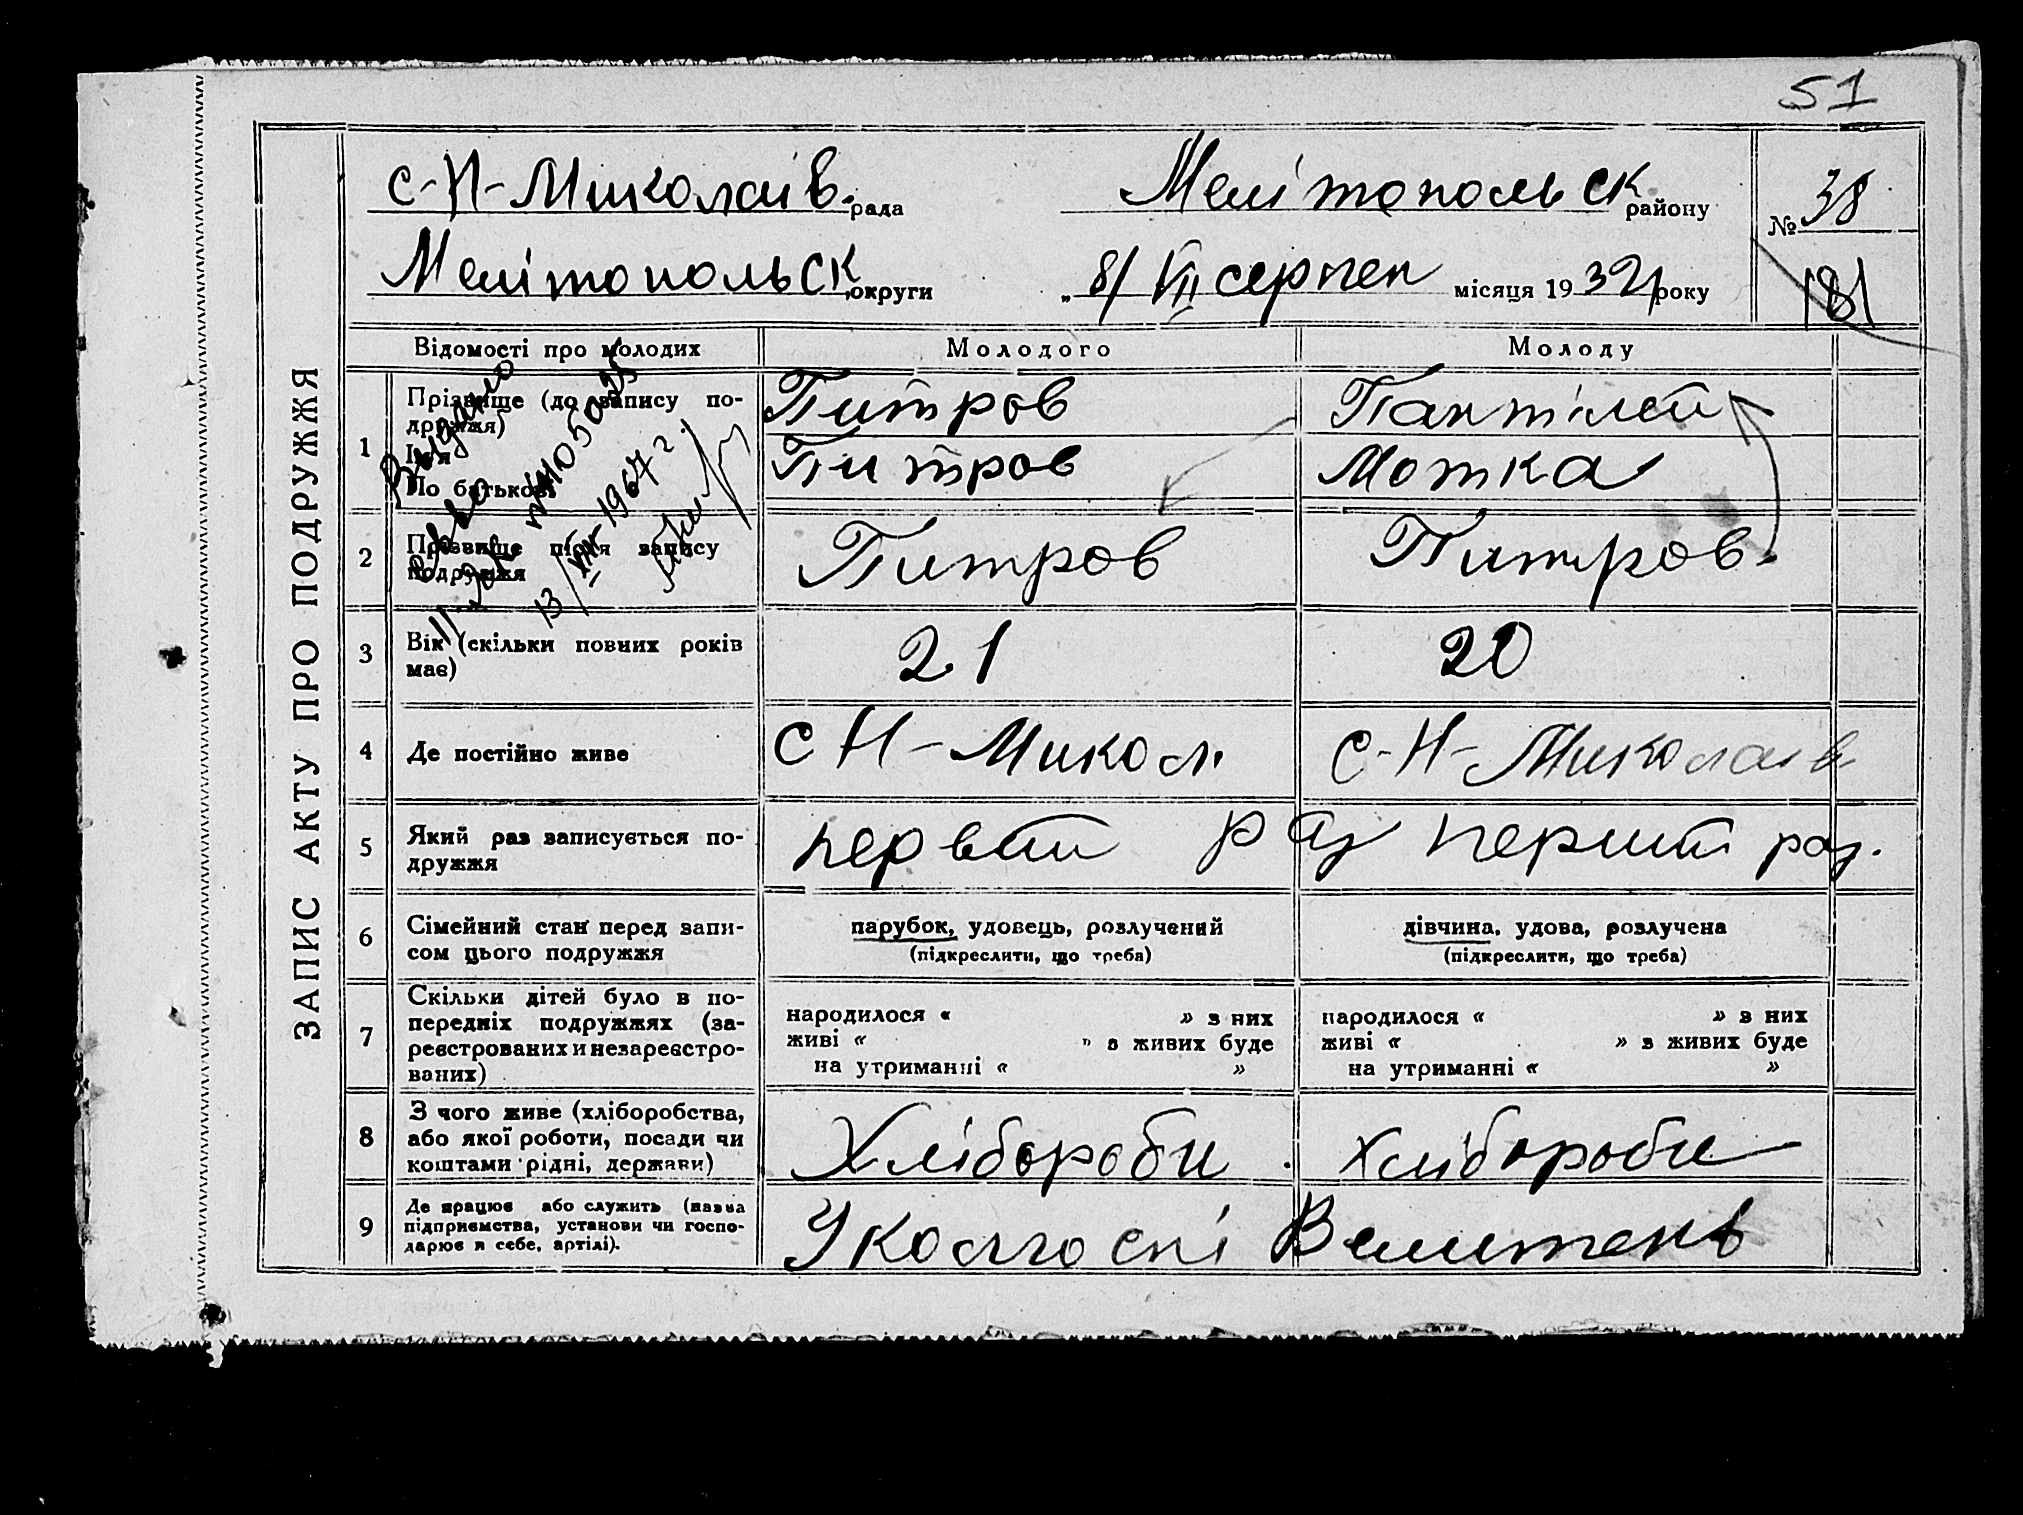 51
с-Н-Миколаїв. рада Мелітопольск району № 38
Мелітопольск округи „8/VIII серпен місяця 1932 року 181
ЗАПИС АКТУ ПРО ПОДРУЖЖЯ
Відомості про молодих Молодого Молоду
1 Прізвище (до запису по-
дружжя) Питров Пантілей
Ім'я
По батькові Питров Мотка
Видано
11-
13/VIII-1967 г.
2 Прізвище після запису
подружжя Питров Питров.
3 Вік (скільки повних років
має) 21 20
4 Де постійно живе с Н-Микол. с-Н-Миколаів
5 Який раз записується по-
дружжя первий раз перший раз.
6 Сімейний стан перед запи-
сом цього подружжя
парубок, удовець, розлучений
(підкреслити, що треба)
дівчина, удова, розлучена
(підкреслити, що треба)
7 Скільки дітей було в по-
передніх подружжях (за-
реєстрованих и незареєстро-
ваних)
народилося « » з них
живі « » з живих буде
на утриманні « »
народилося « » з них
живі « » з живих буде
на утриманні « »
8 З чого живе (хліборобства,
або якої роботи, посади чи
коштами рідні, держави)
Хлібороби. хлібороби
9 Де працює або служить (назва
підприємства, установи чи госпо-
дарює в себе, артілі).
У колгоспі Велитень